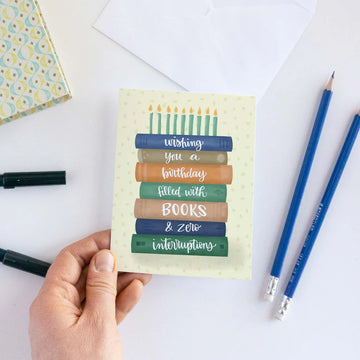 wishing
you a
birthday
filled with
BOOKS
& zero
interruptions